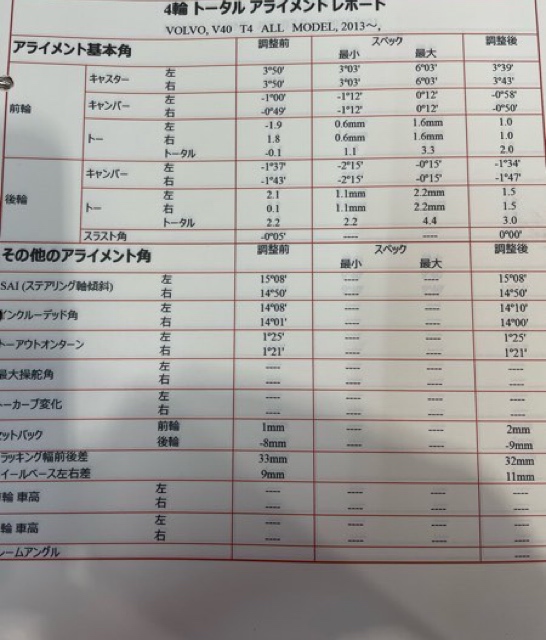 4輪 トータル アライメント レポート
VOLVO, V40 T4 ALL MODEL, 2013～,
アライメント基本角 調整前 スペック 調整後
最小 最大
前輪 キャスター 左 3°50' 3°03' 6°03' 3°39'
右 3°50' 3°03' 6°03' 3°43'
キャンバー 左 -1°00' -1°12' 0°12' -0°58'
右 -0°49' -1°12' 0°12' -0°50'
トー 左 -1.9 0.6mm 1.6mm 1.0
右 1.8 0.6mm 1.6mm 1.0
トータル -0.1 1.1 3.3 2.0
後輪 キャンバー 左 -1°37' -2°15' -0°15' -1°34'
右 -1°43' -2°15' -0°15' -1°47'
トー 左 2.1 1.1mm 2.2mm 1.5
右 0.1 1.1mm 2.2mm 1.5
トータル 2.2 2.2 4.4 3.0
スラスト角 -0°05' ---- ---- 0°00'
その他のアライメント角 調整前 スペック 調整後
最小 最大
SAI (ステアリング輪傾斜) 左 15°08' ---- ---- 15°08'
右 14°50' ---- ---- 14°50'
インクルーデッド角 左 14°08' ---- ---- 14°10'
右 14°01' ---- ---- 14°00'
トーアウトオンターン 左 1°25' ---- ---- 1°25'
右 1°21' ---- ---- 1°21'
最大操舵角 左 ---- ---- ---- ----
右 ---- ---- ---- ----
ーカーブ変化 左 ---- ---- ---- ----
右 ---- ---- ---- ----
セットバック 前輪 1mm 2mm
後輪 -8mm -9mm
ラッキング幅前後差 33mm 32mm
イールベース左右差 9mm 11mm
輪 車高 左 ---- ---- ---- ----
右 ---- ---- ---- ----
輪 車高 左 ---- ---- ---- ----
右 ---- ---- ---- ----
レームアングル ----